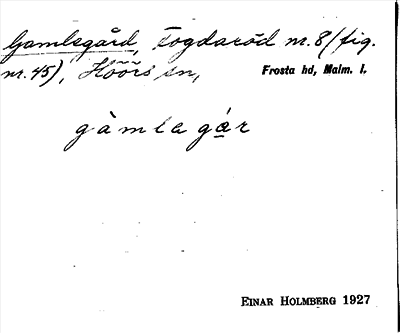 Gamlegård, Fogdaröd nr. 8 (fig.
nr. 45), Höörs sn,
Frosta hd, Malm. l.
gàmlegár
EINAR HOLMBERG 1927